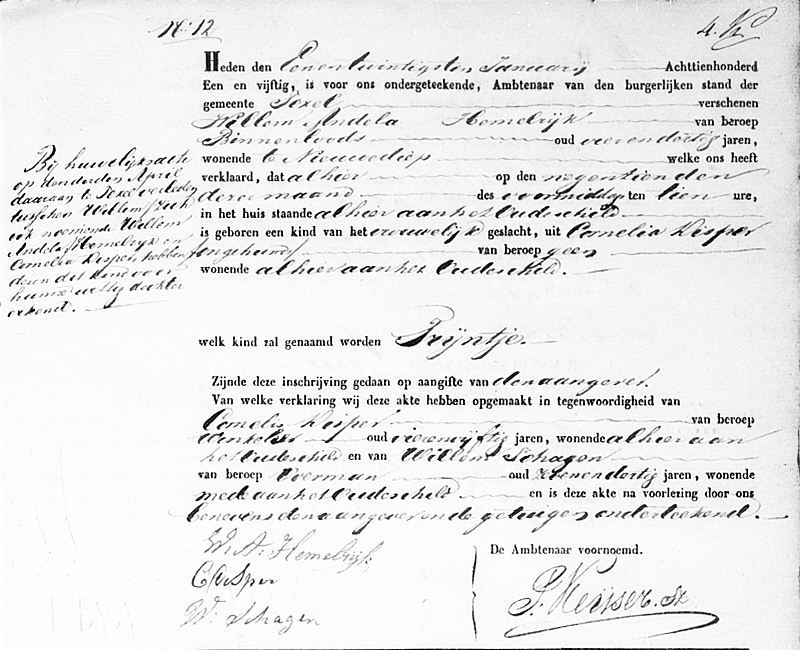 No: 12
4. K
Heden den Eenentwintigsten Januarij Achttienhonderd
Een en vijftig, is voor ons ondergeteekende, Ambtenaar van den burgerlijken stand der
gemeente Texel verschenen
Willem Andela Hemelrijk van beroep
Binnenloods oud vierendertig jaren,
wonende te Nieuwediep welke ons heeft
verklaard, dat alhier op den negentienden
dezer maand des voormiddags ten tien ure,
in het huis staande alhier aan het Oudeschild
is geboren een kind van het vrouwelijk geslacht, uit Cornelia Kesper
(ongehuwd) van beroep geen
wonende alhier aan het Oudeschild.
Bij huwelijksacte
op den derden April
daaraan te Texel verleden
tusschen Willem, zich
ook noemende Willem
Andela Hemelrijk en
Cornelia Kesper, hebben
dezen dit kind voor
hunne wettige dochter
erkend.
welk kind zal genaamd worden Trijntje.
Zijnde deze inschrijving gedaan op aangifte van den aangever.
Van welke verklaring wij deze akte hebben opgemaakt in tegenwoordigheid van
Cornelis Kesper van beroep
winkelier oud vierenvijftig jaren, wonende alhier aan
het Oudeschild en van Willem Schagen
van beroep Voerman oud zevenendertig jaren, wonende
mede aan het Oudeschild en is deze akte na voorlezing door ons
benevens den aangever en de getuigen onderteekend.
W. A. Hemelrijk
De Ambtenaar voornoemd.
C Kesper
P. Keijser. Sz
W. Schagen